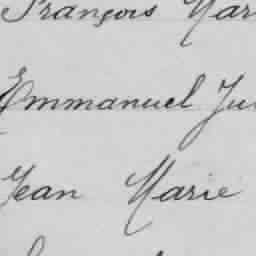 François Mar
Emmanuel Ju
Jean Marie